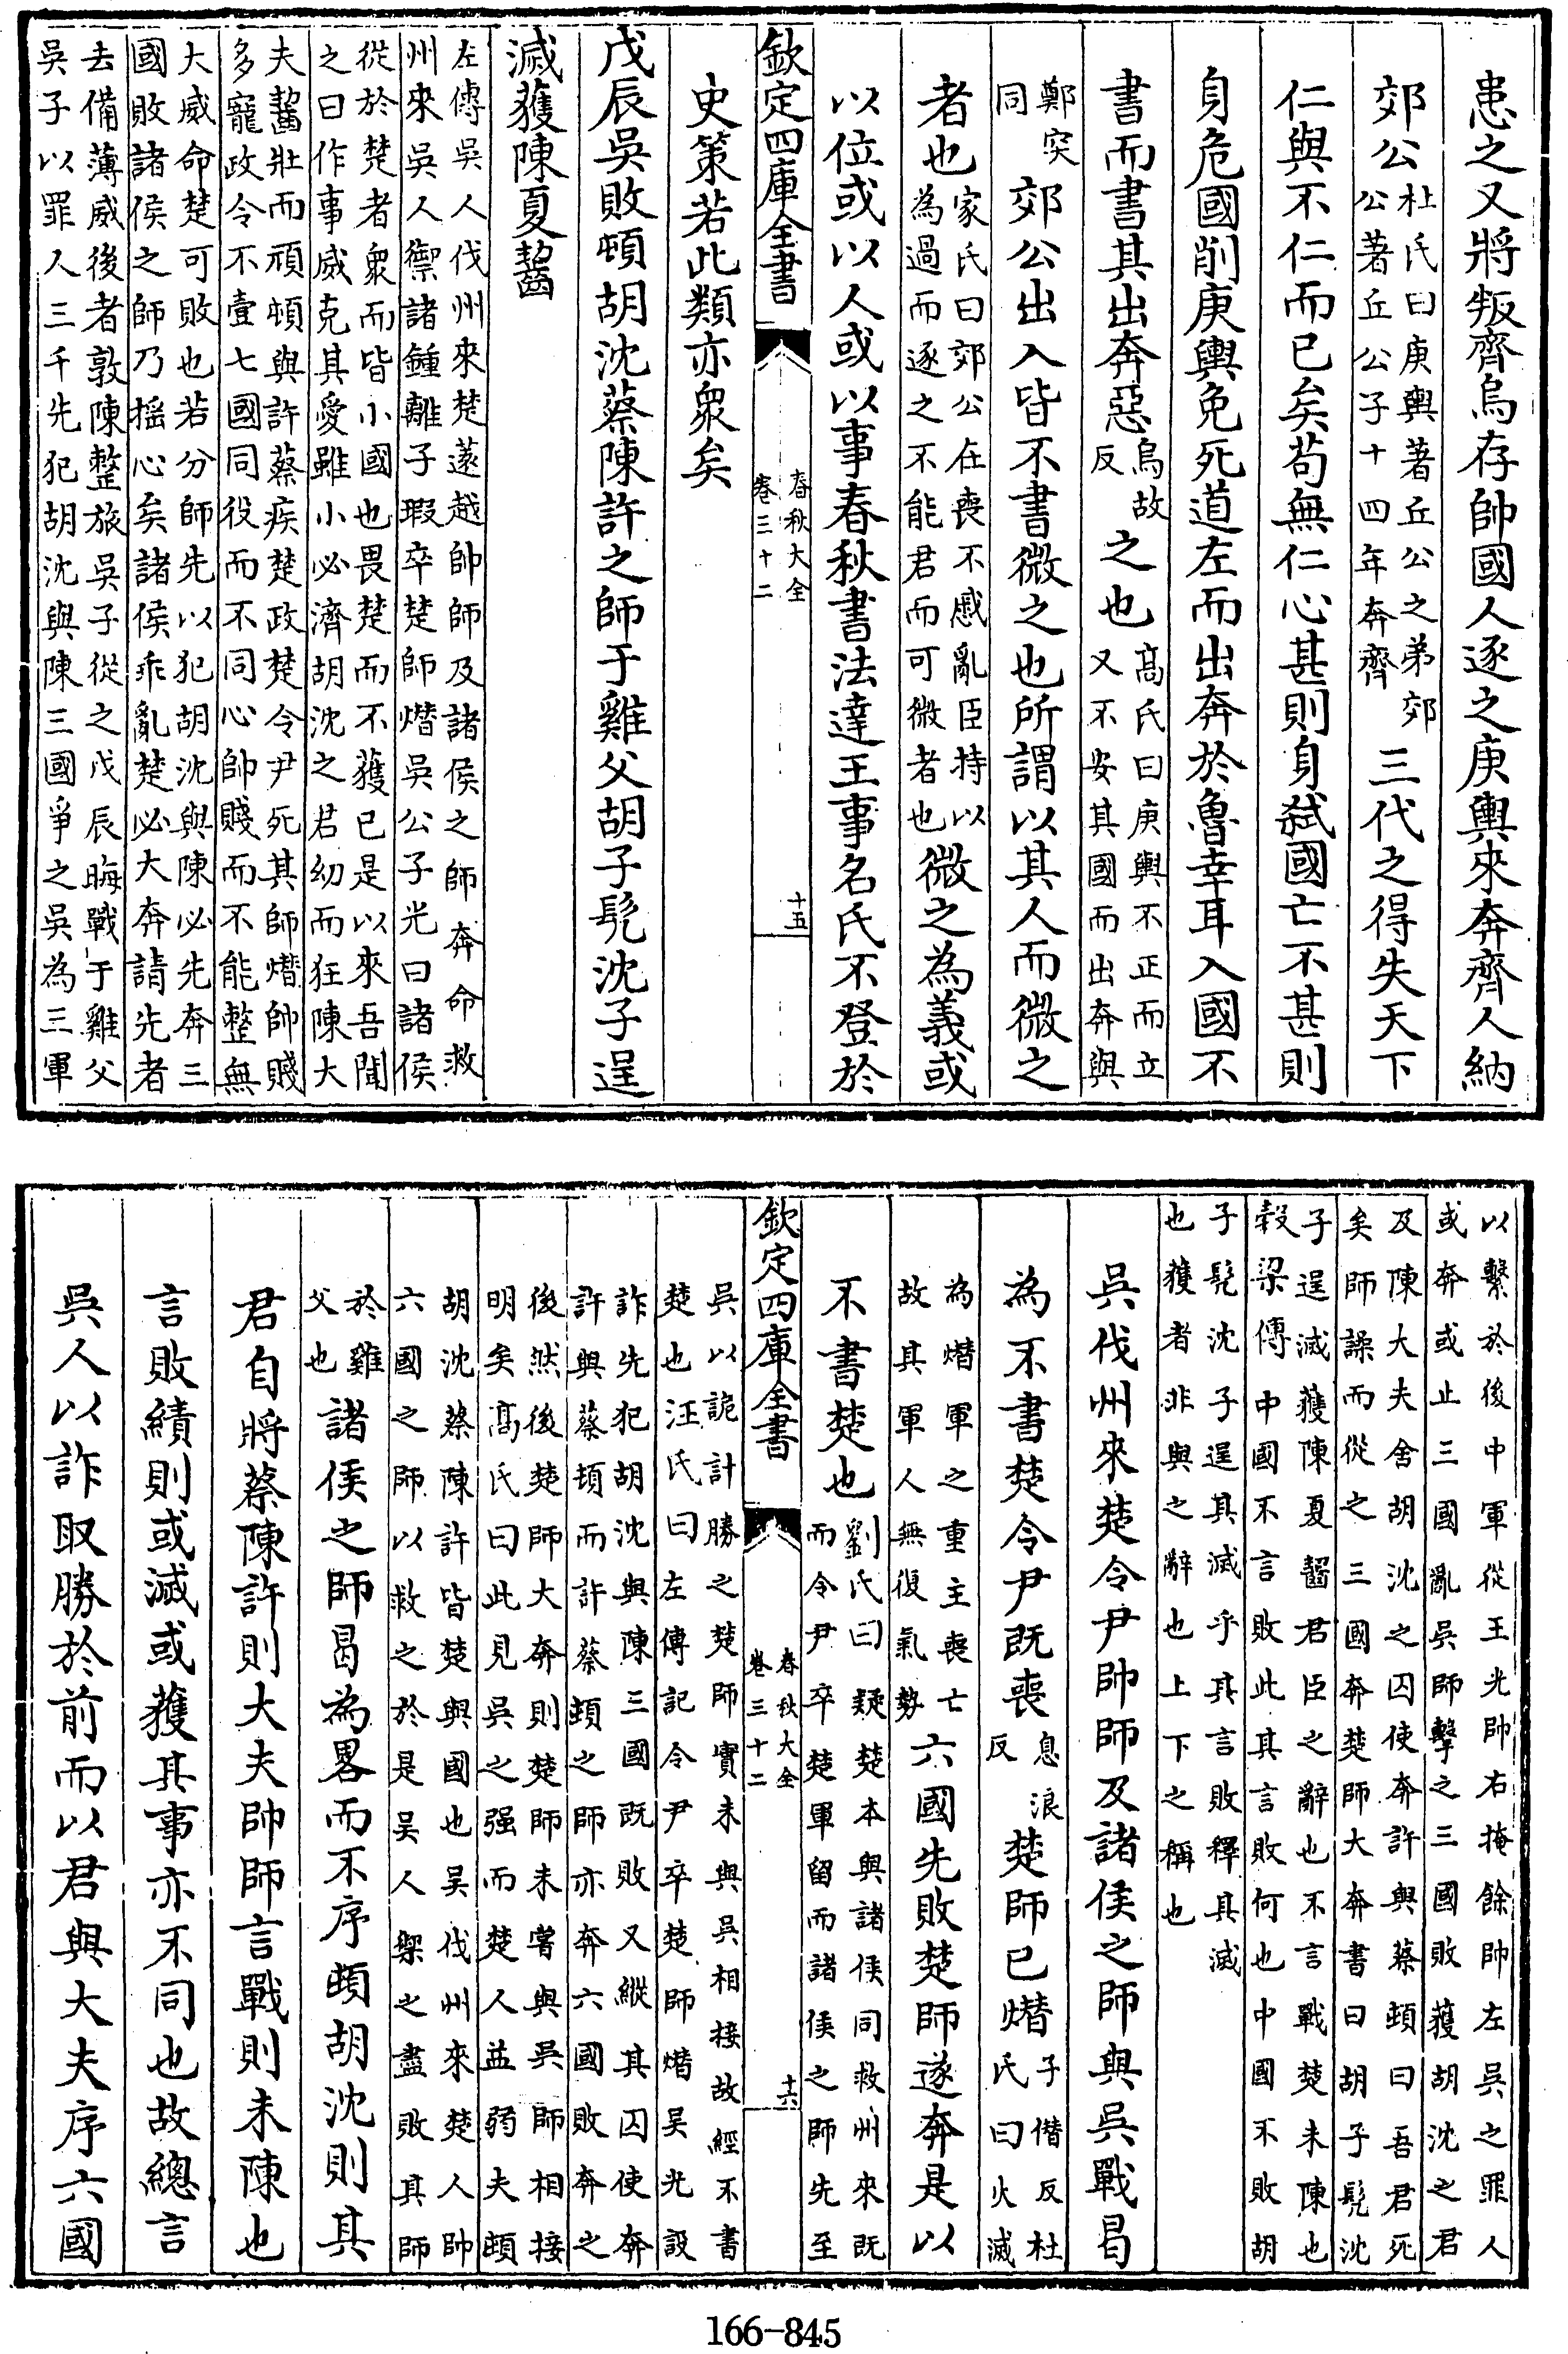 患之又將叛齊烏存帥國人逐之庚輿來奔齊人納
郊公杜氏曰庚輿著丘公之弟郊公著丘公子十四年奔齊三代之得失天下
仁與不仁而已矣苟無仁心甚則身弑國亡不甚則
身危國削庚輿免死道左而出奔於魯幸耳入國不
書而書其出奔惡烏故反之也髙氏曰庚輿不正而立又不安其國而出奔與
鄭突同郊公出入皆不書微之也所謂以其人而微之
者也家氏曰郊公在喪不慼亂臣持以為過而逐之不能君而可微者也微之為義或
以位或以人或以事春秋書法達王事名氏不登於
欽定四庫全書
春秋大全
卷三十二
十五
史策若此類亦衆矣
戊辰吳敗頓胡沈蔡陳許之師于雞父胡子髠沈子逞
滅獲陳夏齧
左傳吳人伐州來楚薳越帥師及諸侯之師奔命救
州來吳人禦諸鍾離子瑕卒楚師熸吳公子光曰諸侯
從於楚者衆而皆小國也畏楚而不獲已是以來吾聞
之曰作事威克其愛雖小必濟胡沈之君幼而狂陳大
夫齧壯而頑頓與許蔡疾楚政楚令尹死其師熸帥賤
多寵政令不壹七國同役而不同心帥賤而不能整無
大威命楚可敗也若分師先以犯胡沈與陳必先奔三
國敗諸侯之師乃揺心矣諸侯乖亂楚必大奔請先者
去備薄威後者敦陳整旅吳子從之戊辰晦戰于雞父
吳子以罪人三千先犯胡沈與陳三國爭之吳為三軍
以繫於後中軍從王光帥右掩餘帥左吳之罪人
或奔或止三國亂吳師擊之三國敗獲胡沈之君
及陳大夫舍胡沈之囚使奔許與蔡頓曰吾君死
矣師譟而從之三國奔楚師大奔書曰胡子髠沈
子逞滅獲陳夏齧君臣之辭也不言戰楚未陳也
穀梁傳中國不言敗此其言敗何也中國不敗胡
子髠沈子逞其滅乎其言敗釋其滅
也獲者非與之辭也上下之稱也
吳伐州來楚令尹帥師及諸侯之師與吳戰曷
為不書楚令尹既喪息浪反楚師已熸子僭反杜氏曰火滅
為熸軍之重主喪亡故其軍人無復氣勢六國先敗楚師遂奔是以
不書楚也劉氏曰疑楚本與諸侯同救州來既而令尹卒楚軍留而諸侯之師先至
欽定四庫全書
春秋大全
卷三十二
十六
吳以詭計勝之楚師實未與吳相接故經不書
楚也汪氏曰左傳記令尹卒楚師熸吳光設
詐先犯胡沈與陳三國既敗又縱其囚使奔
許與蔡頓而許蔡頓之師亦奔六國敗奔之
後然後楚師大奔則楚師未嘗與吳師相接
明矣髙氏曰此見吳之强而楚人益弱夫頓
胡沈蔡陳許皆楚與國也吳伐州來楚人帥
六國之師以救之於是吳人禦之盡敗其師
於雞父也諸侯之師曷為畧而不序頓胡沈則其
君自將蔡陳許則大夫帥師言戰則未陳也
言敗績則或滅或獲其事亦不同也故總言
吳人以詐取勝於前而以君與大夫序六國
166-845